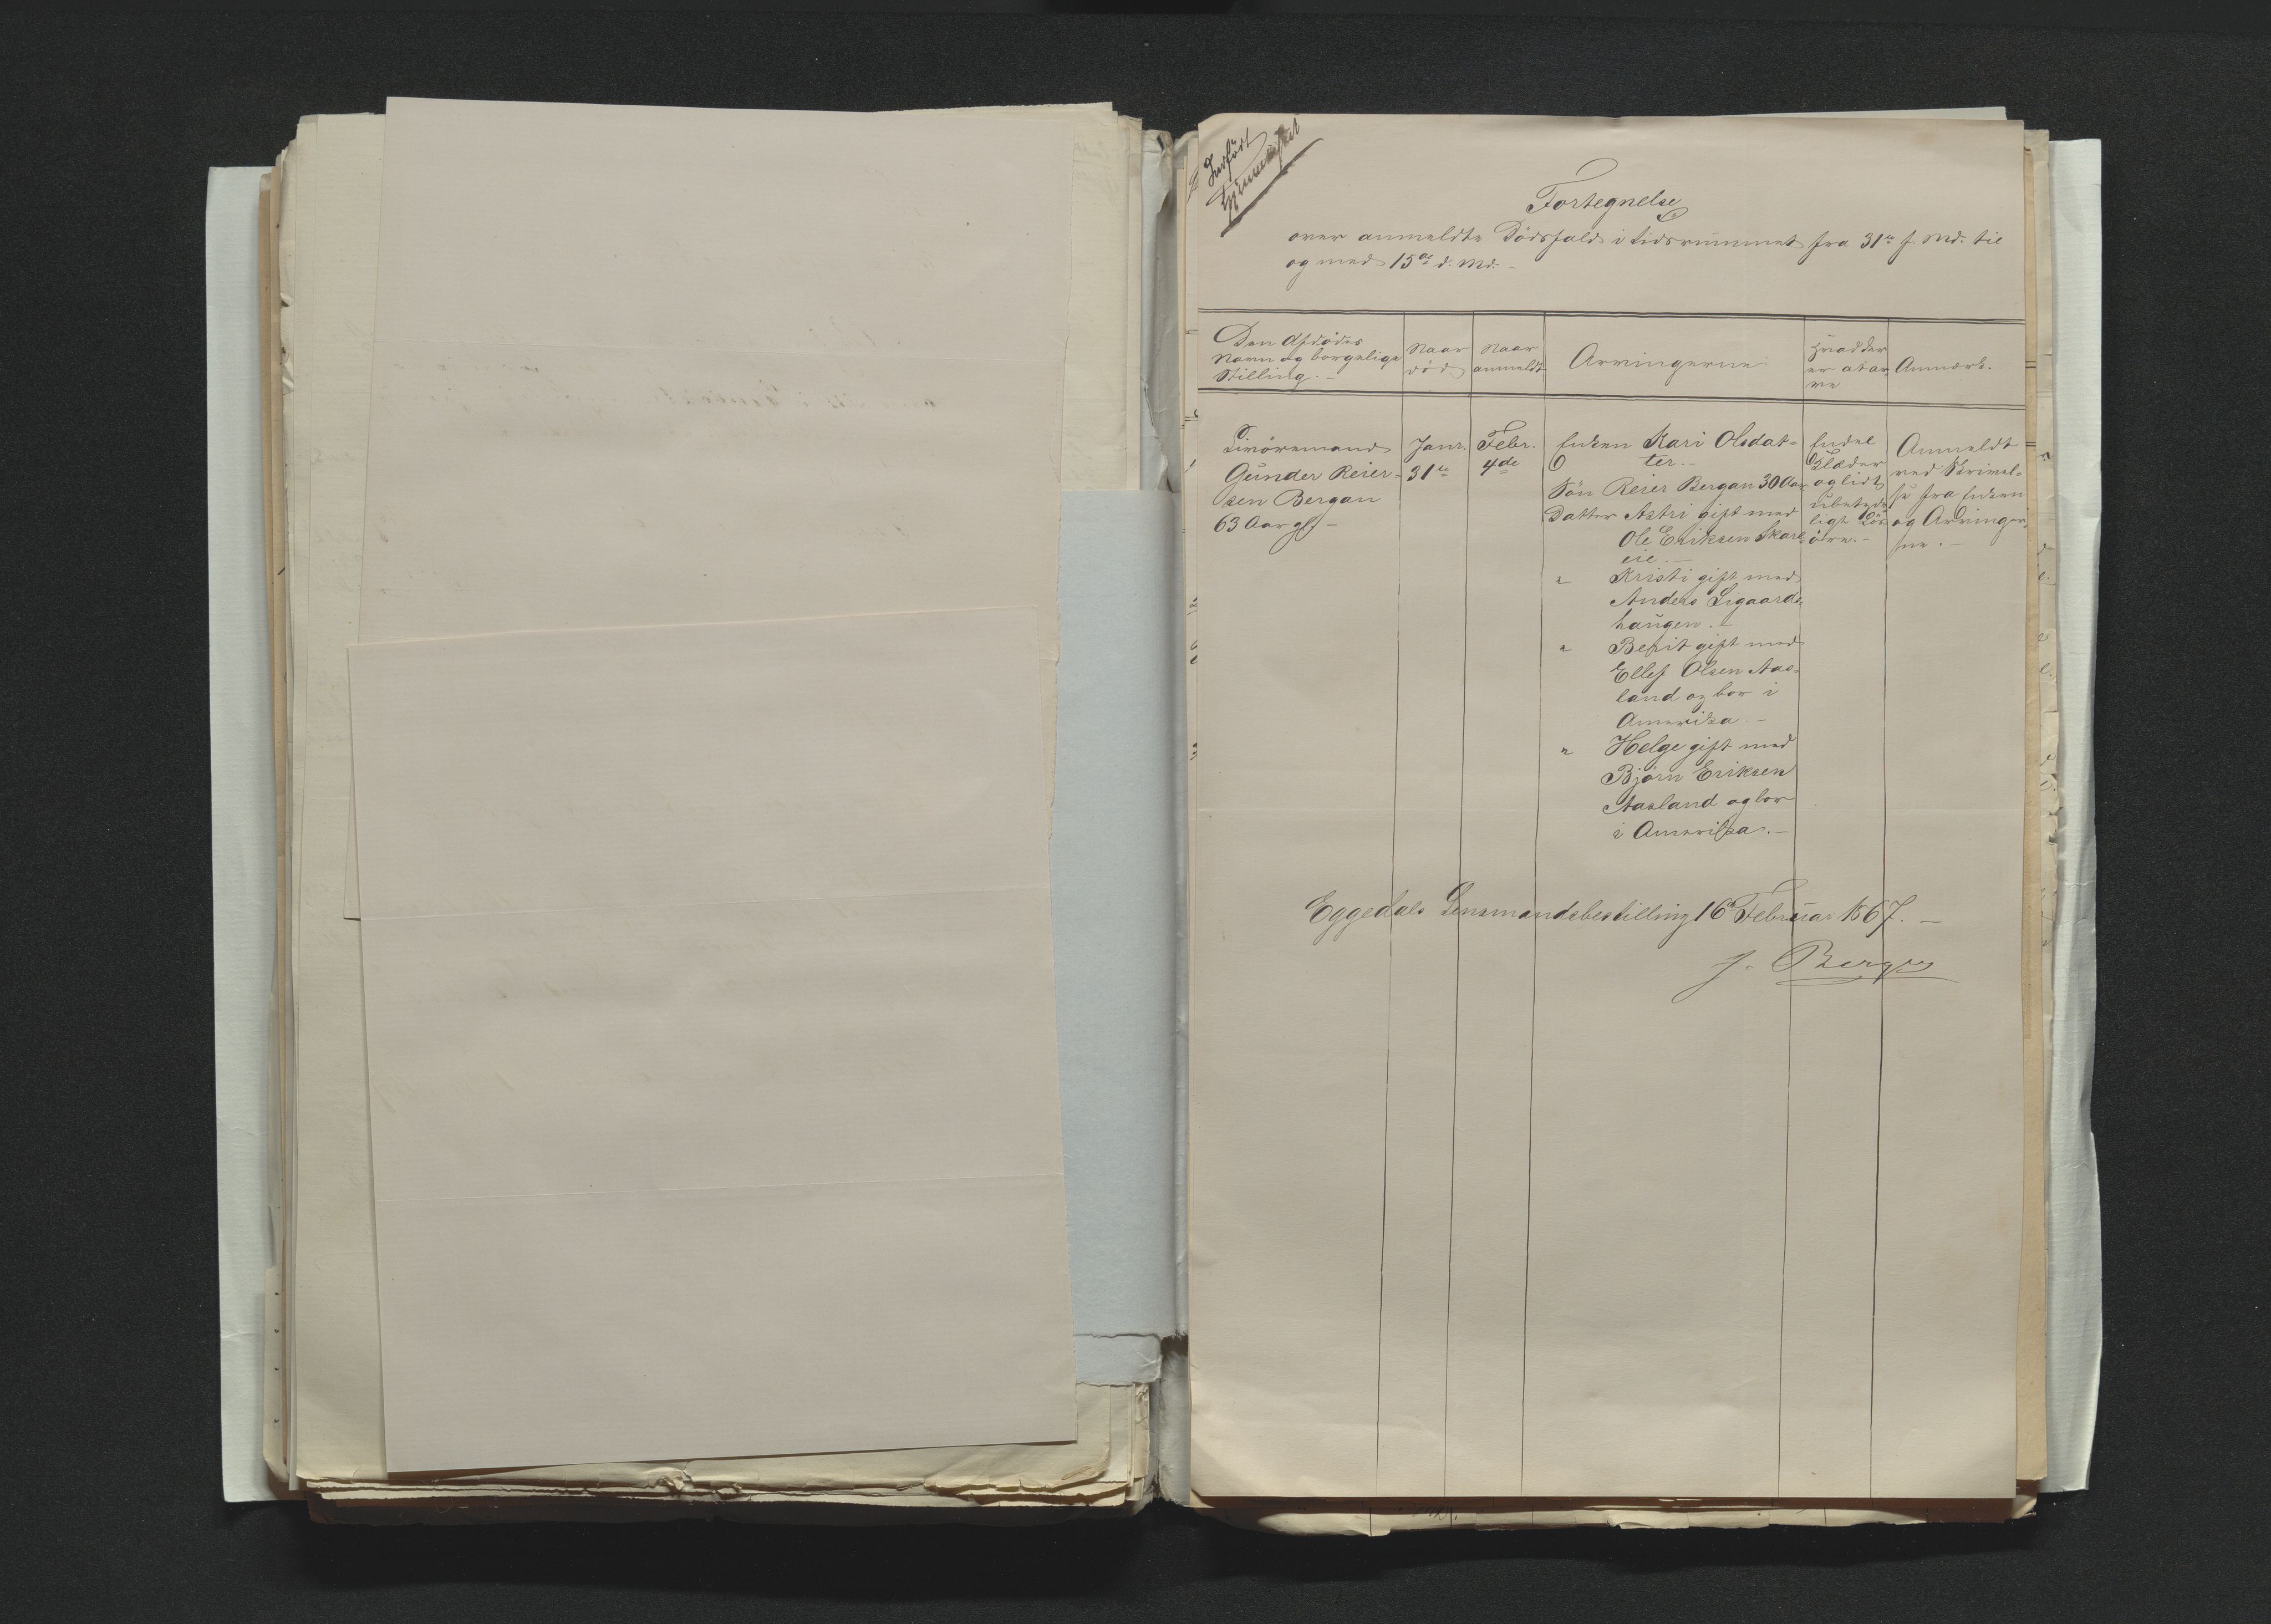 Indført
Fortegnelse
over anmeldte Dödsfald i tidsrummet fra 31te f. Md. til
og med 15de d. Md. –
Den Afdödes
Navn og borgelige
Stilling. –
Naar
död
Naar
anmeldt
Arvingerne
Hvad der
er at ar
ve
Anmærk.
Livöremand
Gunder Reier-
sen Bergan
63 Aar gl –
Janr.
31te
Febr.
4de
Enken Kari Olsdat-
ter. –
Sön Reier Bergan 30 Aar
Datter Astri gift med
Ole Eriksen Skare
eie. –
" Kristi gift med
Anders Ligaards
haugen. –
" Berit gift med
Ellef Olsen Aas-
land og bor i
Amerika. –
" Helge gift med
Björn Eriksen
Aasland og bor
i Amerika. –
Endel
Klæder
og lidt
ubetyde
ligt Lös
öre. –
Anmeldt
ved Skrivel-
se fra Enken
og Arvinger
ne. –
Eggedals Lensmandsbestilling 16de Februar 1867. –
J. Berg